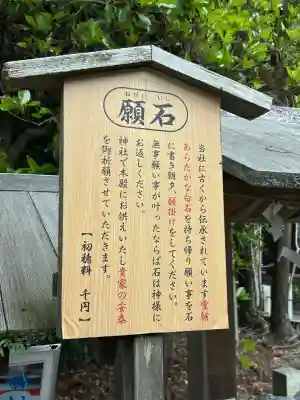 ねがい いし
願石
当社に古くから伝承されています霊験
あらたかな白石を持ち帰り願い事を石
に書き朝夕、願掛けをしてください。
無事願い事が叶ったならば石は神様に
お返しください。
神社で本殿にお供えいたし貴家の安泰
を御祈願させていただきます。
【初穂料 千円】